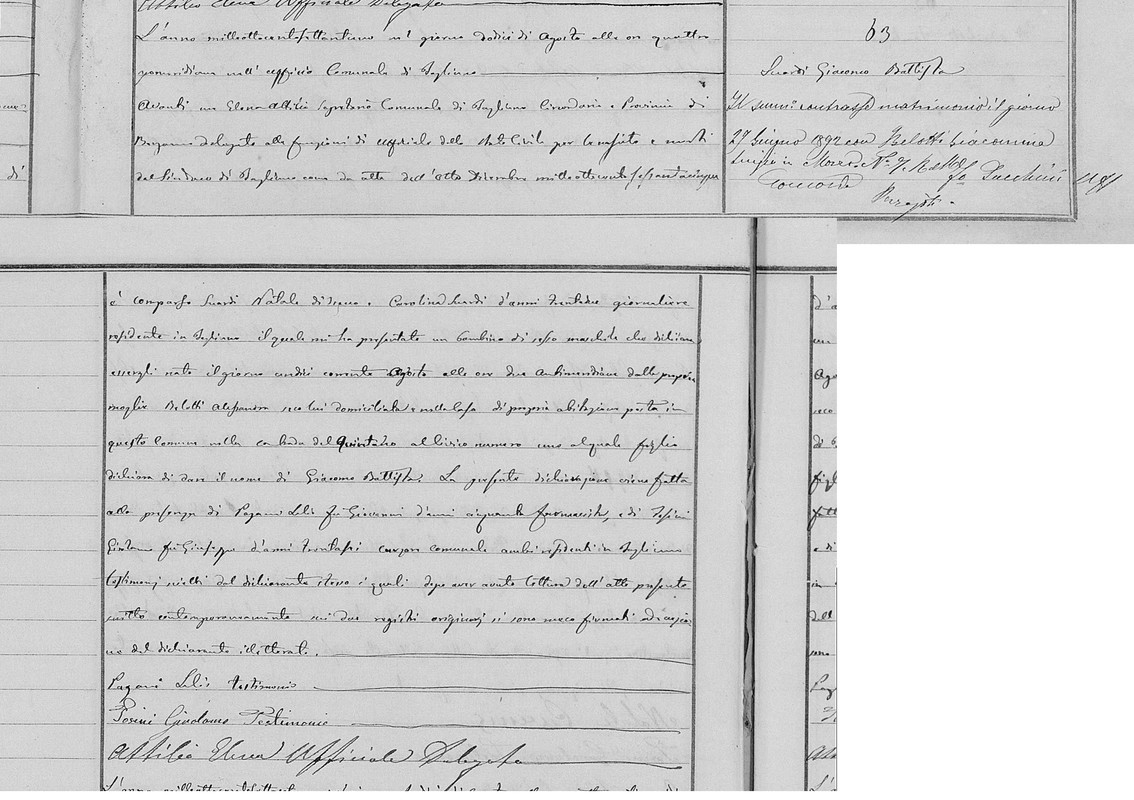 Attilio Elena Ufficiale Delegato
L'anno milleottocentosettantuno nel giorno dodici di Agosto alle ore quattro
pomeridiane nell' ufficio Comunale di Tagliuno
Avanti me Elena Attilio Segretario Comunale di Tagliuno Circondario e Provincia di
Bergamo delegato alle funzioni di ufficiale dello Stato Civile per le nascite e morti
dal Sindaco di Tagliuno come da atto dell'otto Dicembre milleottocento sessantacinque
63
Suardi Giacomo Battista
contrasse matrimonio il giorno
27 Giugno 1892 con Belotti Giacomina
N. 7
è comparso Suardi Natale di e Carolina Suardi d'anni trentadue giornaliere
residente in Tagliuno il quale mi ha presentato un bambino di sesso maschile che dichiara
essergli nato il giorno undici corrente Agosto alle ore due antimeridiane dalla propria
moglie Belotti Alessandra seco lui domiciliata e nella casa di propria abitazione posta in
questo Comune nella contrada del al civico numero uno al quale figlio
dichiara di dare il nome di Giacomo Battista. La presente dichiarazione viene fatta
alla presenza di Pagani Lelio fu Giovanni d'anni cinquanta farmacista, e di Tosini
Girolamo fu Giuseppe d'anni trentasei cursore comunale ambi residenti in Tagliuno
testimonj scelti dal dichiarante stesso i quali dopo aver avuto lettura dell'atto presente
scritto contemporaneamente sui due registri originarj si sono meco firmati ad eccezio-
ne del dichiarante illetterato.
Pagani Lelio testimonio
Tosini Girolamo Testimonio
Attilio Elena Ufficiale Delegato
L'anno